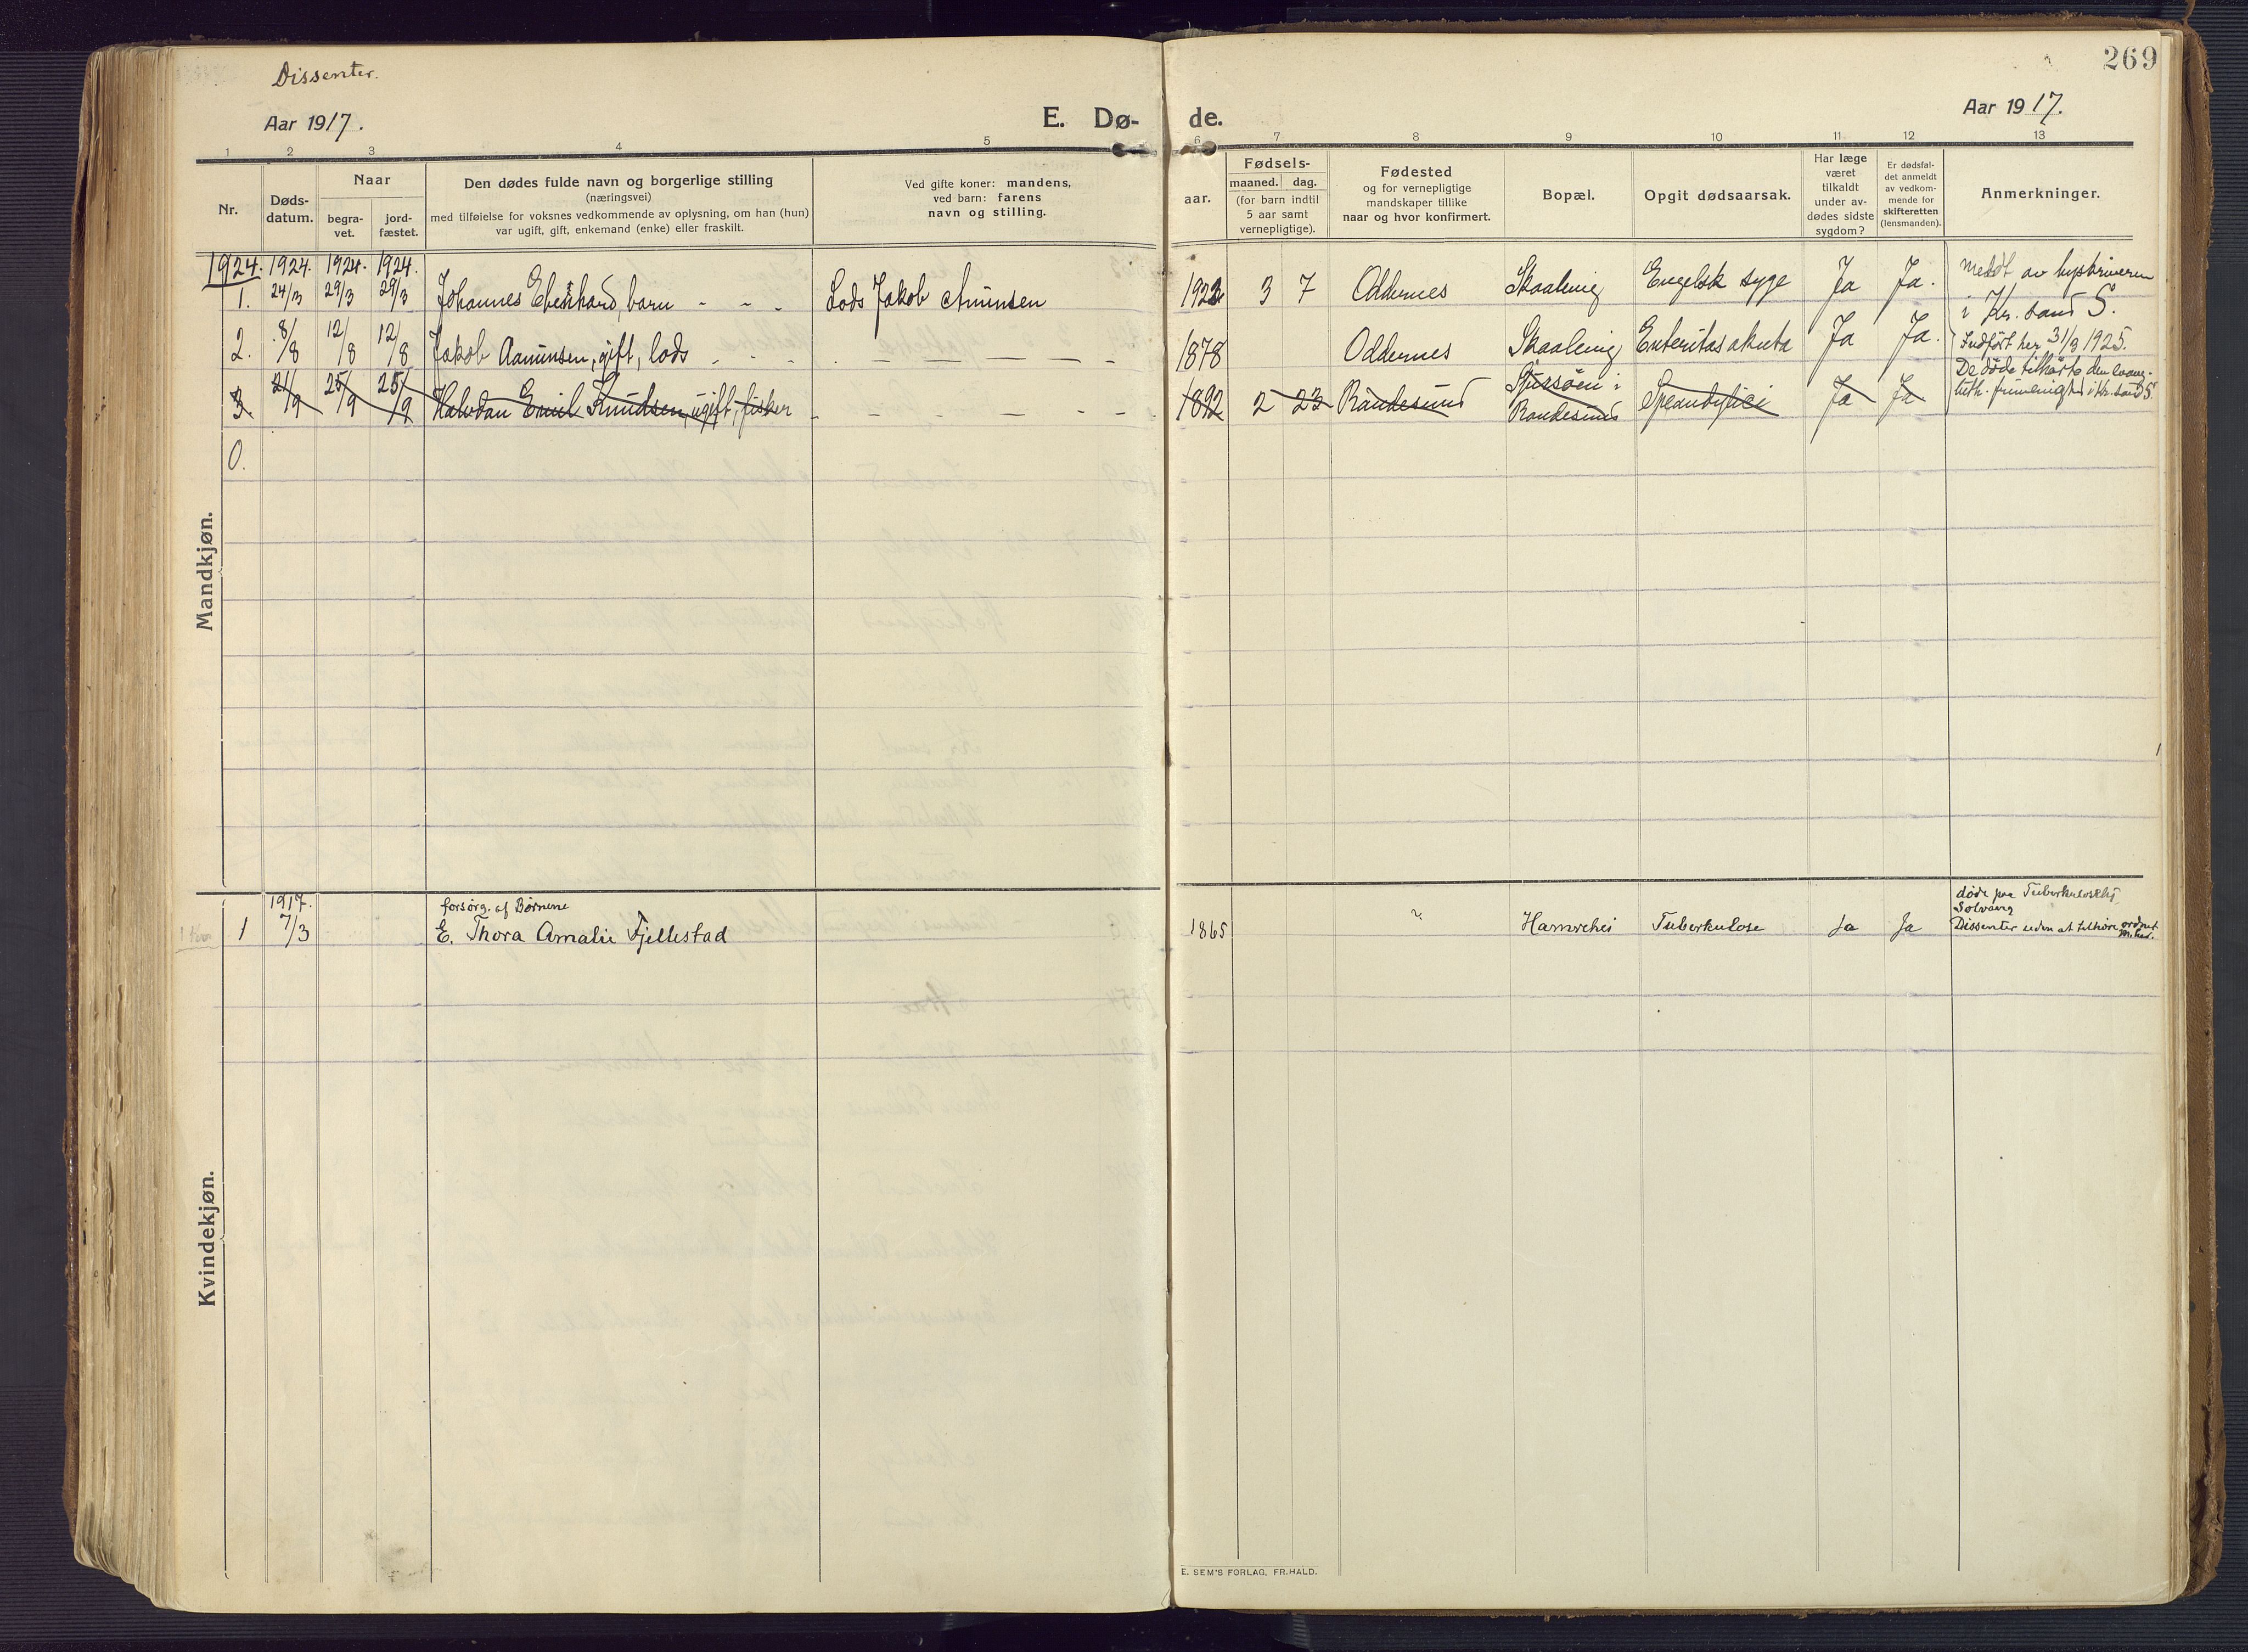 Dissenter.
269
Aar 1917.
E. Dø-
de.
Aar 1917.
1 2 3 4 5 6 7 8 9 10 11 12 13
Nr.
Døds-
datum.
Naar
begra-
vet.
jord-
fæstet.
Den dødes fulde navn og borgerlige stilling
(næringsvei)
med tilføielse for voksnes vedkommende av oplysning, om han (hun)
var ugift, gift, enkemand (enke) eller fraskilt.
Ved gifte koner: mandens,
ved barn: farens
navn og stilling.
Fødsels-
aar.
maaned. dag.
(for barn indtil
5 aar samt
vernepligtige).
Fødested
og for vernepligtige
mandskaper tillike
naar og hvor konfirmert.
Bopæl.
Opgit dødsaarsak.
Har læge
været
tilkaldt
under av-
dødes sidste
sygdom?
Er dødsfal-
det anmeldt
av vedkom-
mende for
skifteretten
(lensmanden).
Anmerkninger.
Mandkjøn.
1924. 1924. 1924. 1924.
1. 24/3 29/3 29/3 Johannes Ebenhard, barn - - Lods Jakob Amunsen 1923 3 7 Oddernes Skaalevig Engelsk syge Ja Ja.
2. 8/8 12/8 12/8 Jakob Aamunsen, gift, lods - - - 1878 Oddernes Skaalevig Enteritas akuta Ja Ja.
3. 21/9 25/9 25/9 Halvdan Emil Knudsen, ugift, fisker 1892 2 23 Randesund i Randesund Ja Ja
0.
Meldt av byskriveren
i Kr. sand S.
Indført her 31/3 1925.
De døde tilhørte den evang.
luth. frimenighed i Kr. sand S.
Kvindekjøn.
1917.
forsørg. af Børnene
1 7/3 E. Thora Amalie Fjellestad 1865 ? Hamrehei Tuberkulose Ja Ja
døde paa
Solvang
Dissenter uden at tilhøre ordnet
m.hed.
E. SEM'S FORLAG, FR.HALD.